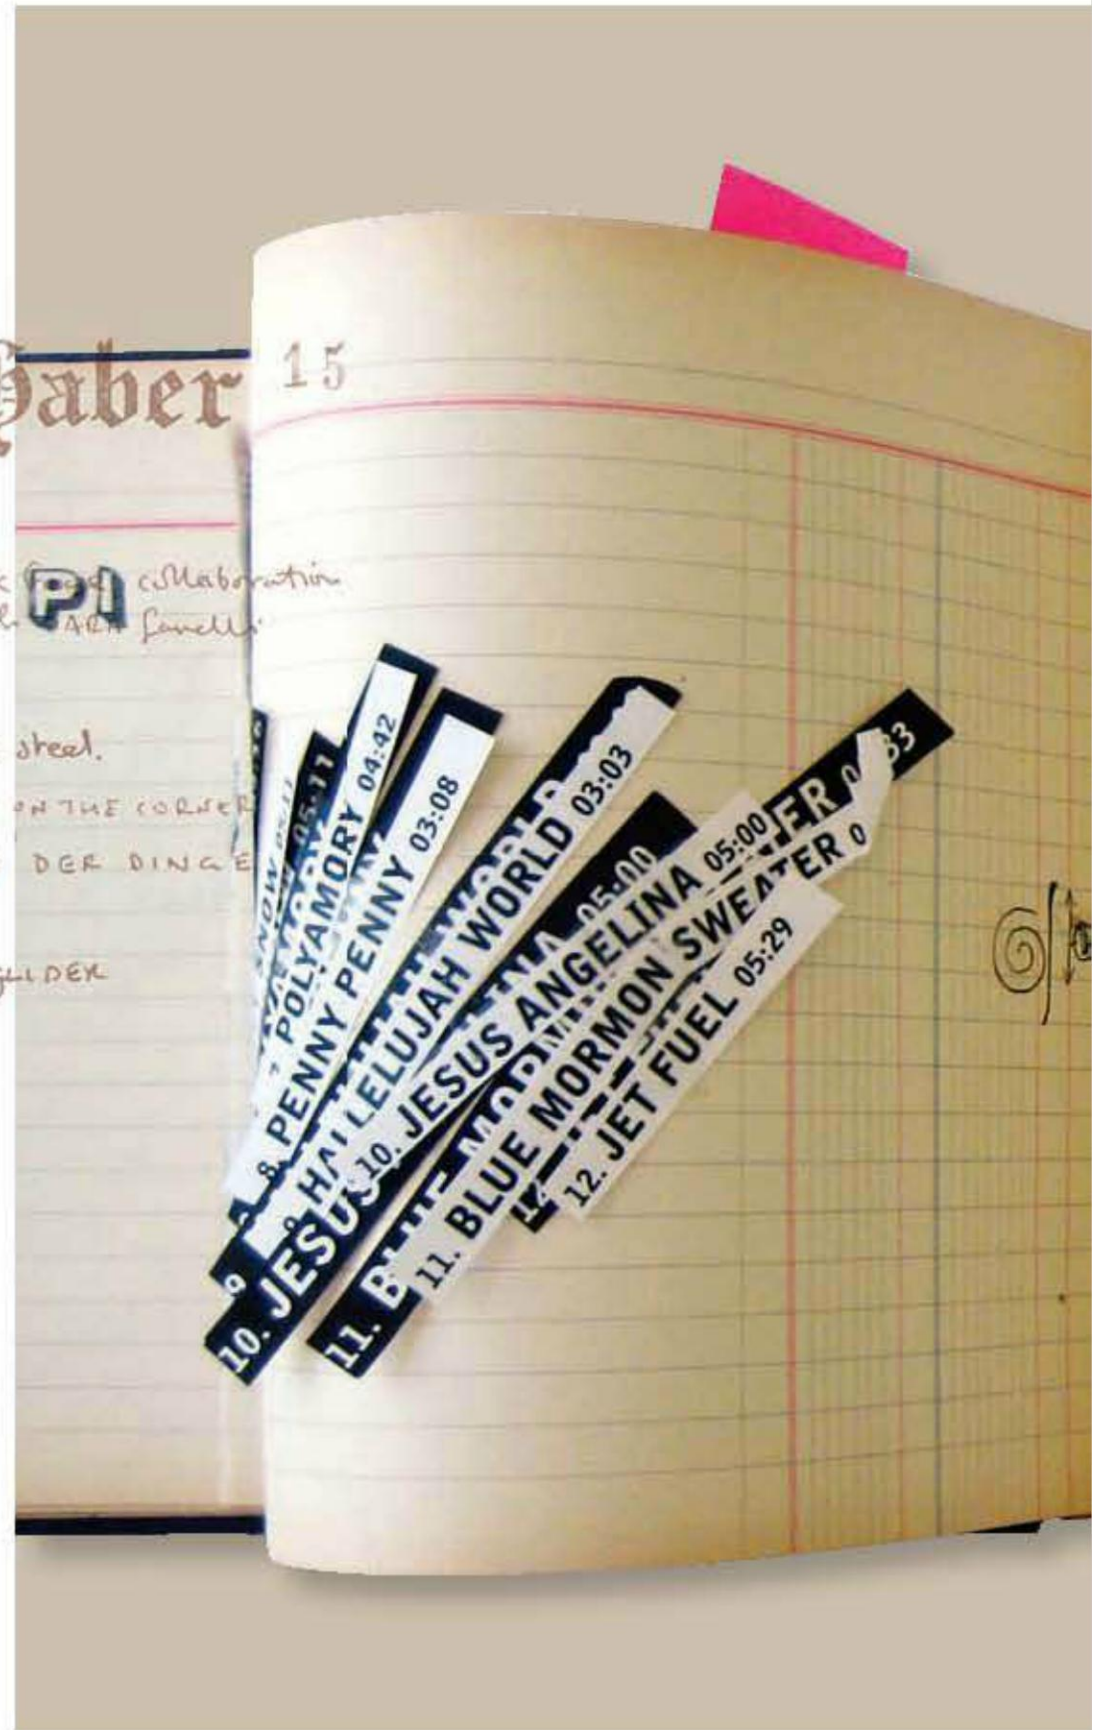 Haber 15
PI
collaboration
steel.
ON THE CORNER
DER DINGE
GLIDER
SNOW
05:11
7 POLYAMORY 04:42
8. PENNY PENNY 03:08
HALLELUJAH WORLD 03:03
9
05:00
10. JESUS ANGELINA 05:00
10. JESUS
ER 0 33
11. BLUE MORMON SWEATER 0
11. BLUE MOR
12. JET FUEL 05:29
12